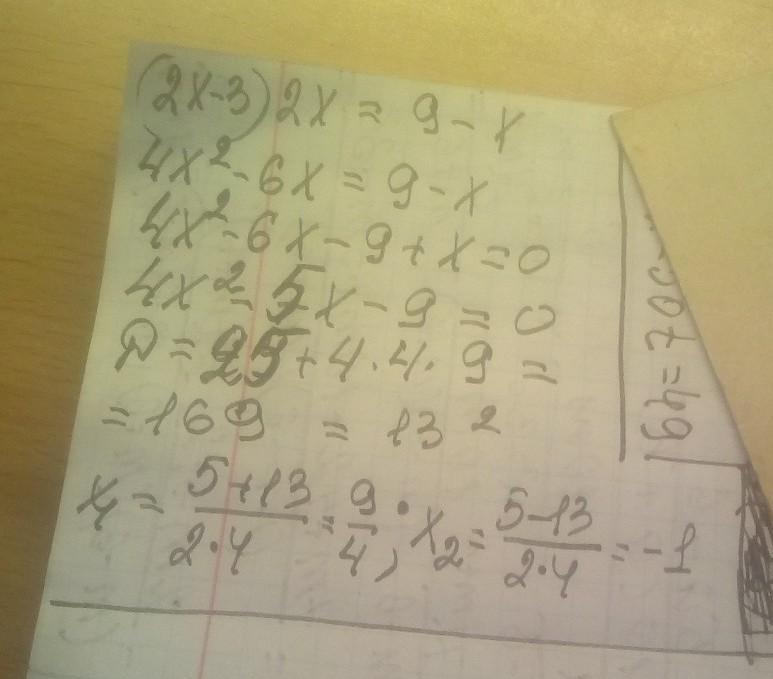 (2x-3)2x = 9-x
4x²-6x = 9-x
4x²-6x-9+x=0
4x²-5x-9=0
D=25+4·4·9=
=169 = 13²
x₁ = (5+13)/(2·4) = 9/4; x₂ = (5-13)/(2·4) = -1